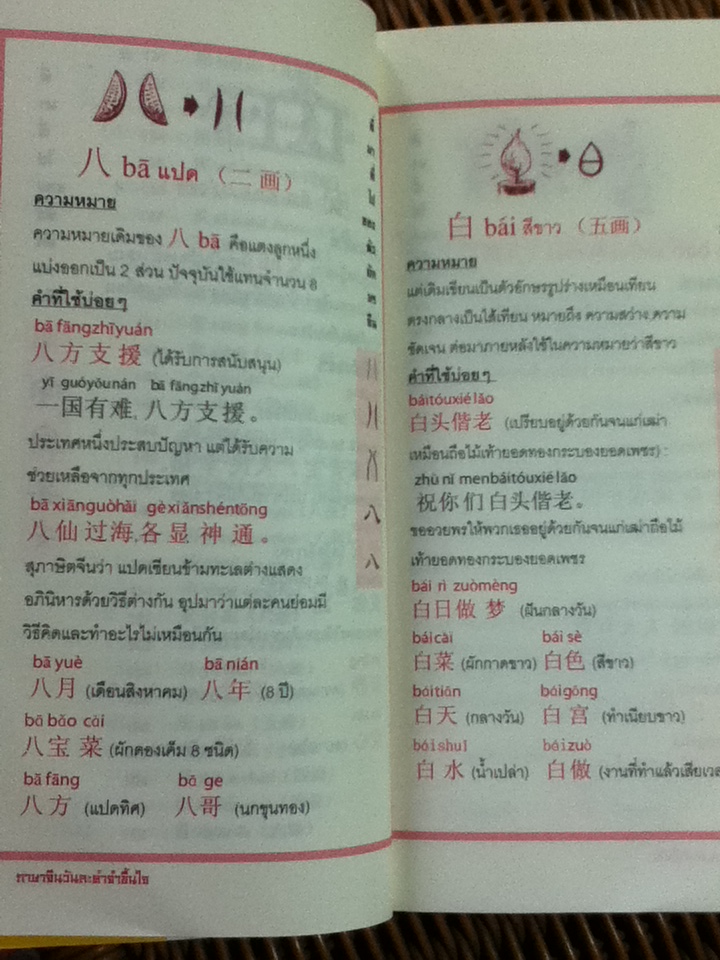 八 bā แปด (二 画)
ความหมาย
ความหมายเดิมของ 八 bā คือแตงลูกหนึ่ง
แบ่งออกเป็น 2 ส่วน ปัจจุบันใช้แทนจำนวน 8
คำที่ใช้บ่อยๆ
bā fāngzhīyuán
八方支援 (ได้รับการสนับสนุน)
yī guóyǒunán bā fāngzhīyuán
一国有难, 八方支援。
ประเทศหนึ่งประสบปัญหา แต่ได้รับความ
ช่วยเหลือจากทุกประเทศ
bā xiānguòhǎi gèxiǎnshéntōng
八仙过海,各显神通。
สุภาษิตจีนว่า แปดเซียนข้ามทะเลต่างแสดง
อภินิหารด้วยวิธีต่างกัน อุปมาว่าแต่ละคนย่อมมี
วิธีคิดและทำอะไรไม่เหมือนกัน
bā yuè bā nián
八月 (เดือนสิงหาคม) 八年 (8 ปี)
bā bǎo cài
八宝菜 (ผักดองเค็ม 8 ชนิด)
bā fāng bā ge
八方 (แปดทิศ) 八哥 (นกขุนทอง)
ภาษาจีนวันละคำจำขึ้นใจ
八
八
白 bái สีขาว (五画)
ความหมาย
แต่เดิมเขียนเป็นตัวอักษรรูปร่างเหมือนเทียน
ตรงกลางเป็นไส้เทียน หมายถึง ความสว่าง ความ
ชัดเจน ต่อมาภายหลังใช้ในความหมายว่าสีขาว
คำที่ใช้บ่อยๆ
báitóuxiélǎo
白头偕老 (เปรียบอยู่ด้วยกันจนแก่เฒ่า
เหมือนถือไม้เท้ายอดทองกระบองยอดเพชร) :
zhù nǐ menbáitóuxiélǎo
祝你们白头偕老。
ขออวยพรให้พวกเธออยู่ด้วยกันจนแก่เฒ่าถือไม้
เท้ายอดทองกระบองยอดเพชร
bái rì zuòmèng
白日做梦 (ฝันกลางวัน)
báicài bái sè
白菜 (ผักกาดขาว) 白色 (สีขาว)
báitiān báigōng
白天 (กลางวัน) 白宫 (ทำเนียบขาว)
báishuǐ báizuò
白水 (น้ำเปล่า) 白做 (งานที่ทำแล้วเสียเวล